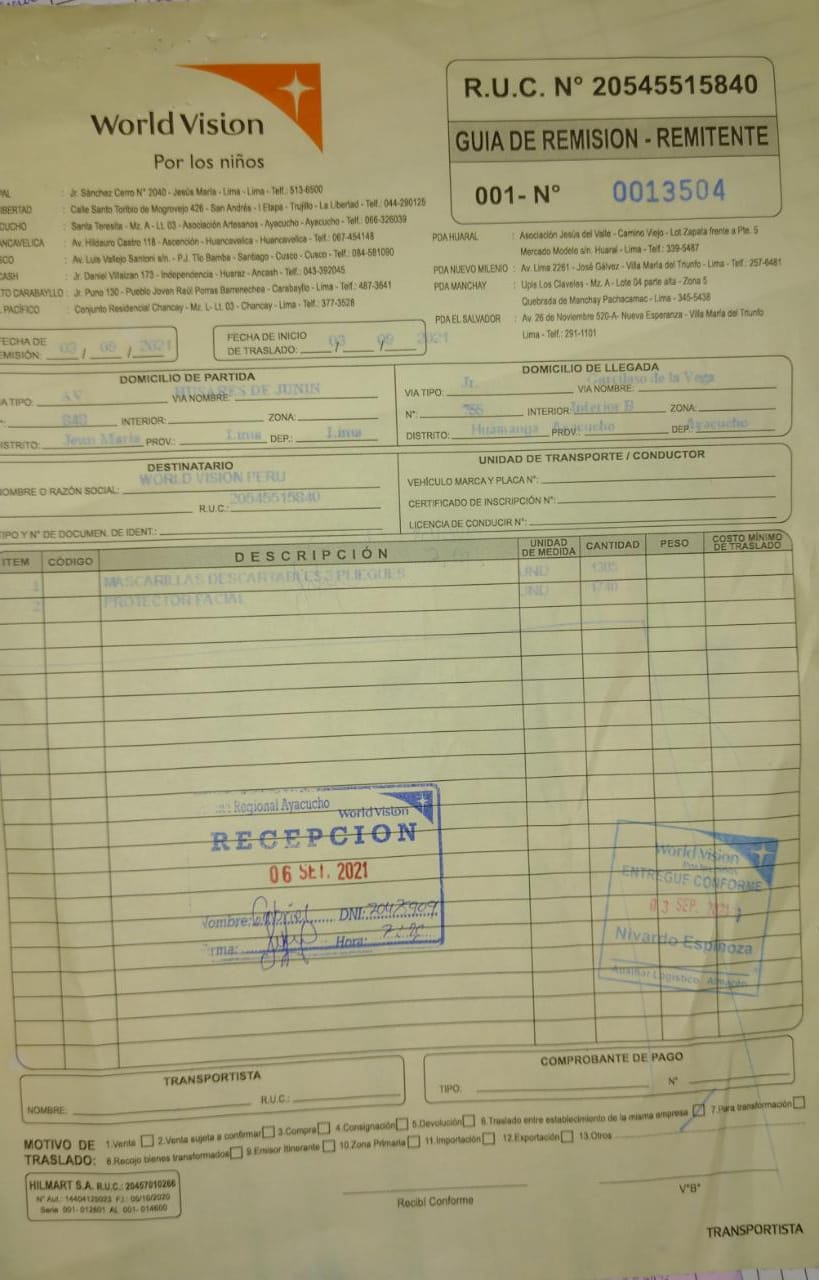 World Vision
Por los niños
R.U.C. N° 20545515840
GUIA DE REMISION - REMITENTE
001- N° 0013504
PAL : Jr. Sánchez Cerro N° 2040 - Jesús María - Lima - Lima - Telf.: 513-6500
IBERTAD : Calle Santo Toribio de Mogrovejo 426 - San Andrés - I Etapa - Trujillo - La Libertad - Telf.: 044-290125
CUCHO : Santa Teresita - Mz. A - Lt. 03 - Asociación Artesanos - Ayacucho - Ayacucho - Telf.: 066-326039
ANCAVELICA : Av. Hildauro Castro 118 - Ascención - Huancavelica - Huancavelica - Telf.: 067-454148
SCO : Av. Luis Vallejo Santoni s/n. - P.J. Tío Bamba - Santiago - Cusco - Cusco - Telf.: 084-581090
CASH : Jr. Daniel Villaizan 173 - Independencia - Huaraz - Ancash - Telf.: 043-392045
TO CARABAYLLO : Jr. Puno 130 - Pueblo Joven Raúl Porras Barrenechea - Carabayllo - Lima - Telf.: 487-3641
PACÍFICO : Conjunto Residencial Chancay - Mz. L- Lt. 03 - Chancay - Lima - Telf.: 377-3528
PDA HUARAL : Asociación Jesús del Valle - Camino Viejo - Lot Zapata frente a Pte. 5
Mercado Modelo s/n. Huaral - Lima - Telf.: 339-5487
PDA NUEVO MILENIO : Av. Lima 2261 - José Gálvez - Villa María del Triunfo - Lima - Telf.: 257-6481
PDA MANCHAY : Upis Los Claveles - Mz. A - Lote 04 parte alta - Zona 5
Quebrada de Manchay Pachacamac - Lima - 345-5438
PDA EL SALVADOR : Av. 26 de Noviembre 520-A- Nueva Esperanza - Villa María del Triunfo
Lima - Telf.: 291-1101
FECHA DE
EMISIÓN: 03 / 09 / 2021
FECHA DE INICIO
DE TRASLADO: 03 / 09 2021
DOMICILIO DE PARTIDA
VIA TIPO: AV. VIA NOMBRE: HUSARES DE JUNIN
INTERIOR: ZONA:
DISTRITO: Jesus Maria PROV.: Lima DEP.: Lima
DOMICILIO DE LLEGADA
VIA TIPO: Jr. VIA NOMBRE: Garcilaso de la Vega
N°: INTERIOR: Interior B ZONA:
DISTRITO: Huamanga PROV.: Ayacucho DEP.: Ayacucho
DESTINATARIO
NOMBRE O RAZÓN SOCIAL: WORLD VISION PERU
R.U.C.: 20545515840
TIPO Y N° DE DOCUMEN. DE IDENT.:
UNIDAD DE TRANSPORTE / CONDUCTOR
VEHÍCULO MARCA Y PLACA N°:
CERTIFICADO DE INSCRIPCIÓN N°:
LICENCIA DE CONDUCIR N°:
ITEM CÓDIGO DESCRIPCIÓN UNIDAD DE MEDIDA CANTIDAD PESO COSTO MÍNIMO DE TRASLADO
1 MASCARILLAS DESCARTABLES 3 PLIEGUES UND
2 PROTECTOR FACIAL UND 1740
Regional Ayacucho World Vision
RECEPCION
06 SET. 2021
Nombre: Gabriel DNI:
Firma: Hora:
World Vision
Por los niños
ENTREGUE CONFORME
03 SEP. 2021
Nivardo Espinoza
Auxiliar Logistico Almacén
TRANSPORTISTA
NOMBRE: R.U.C.:
COMPROBANTE DE PAGO
TIPO: N°
MOTIVO DE TRASLADO: 1.Venta 2.Venta sujeta a confirmar 3.Compra 4.Consignación 5.Devolución 6.Traslado entre establecimiento de la misma empresa 7.Para transformación
8.Recojo bienes transformados 9.Emisor Itinerante 10.Zona Primaria 11.Importación 12.Exportación 13.Otros
HILMART S.A. R.U.C.: 20457010266
N° Aut.: 14404125023 F.I.: 06/10/2020
Serie 001- 012601 AL 001- 014600
Recibí Conforme
V°B°
TRANSPORTISTA